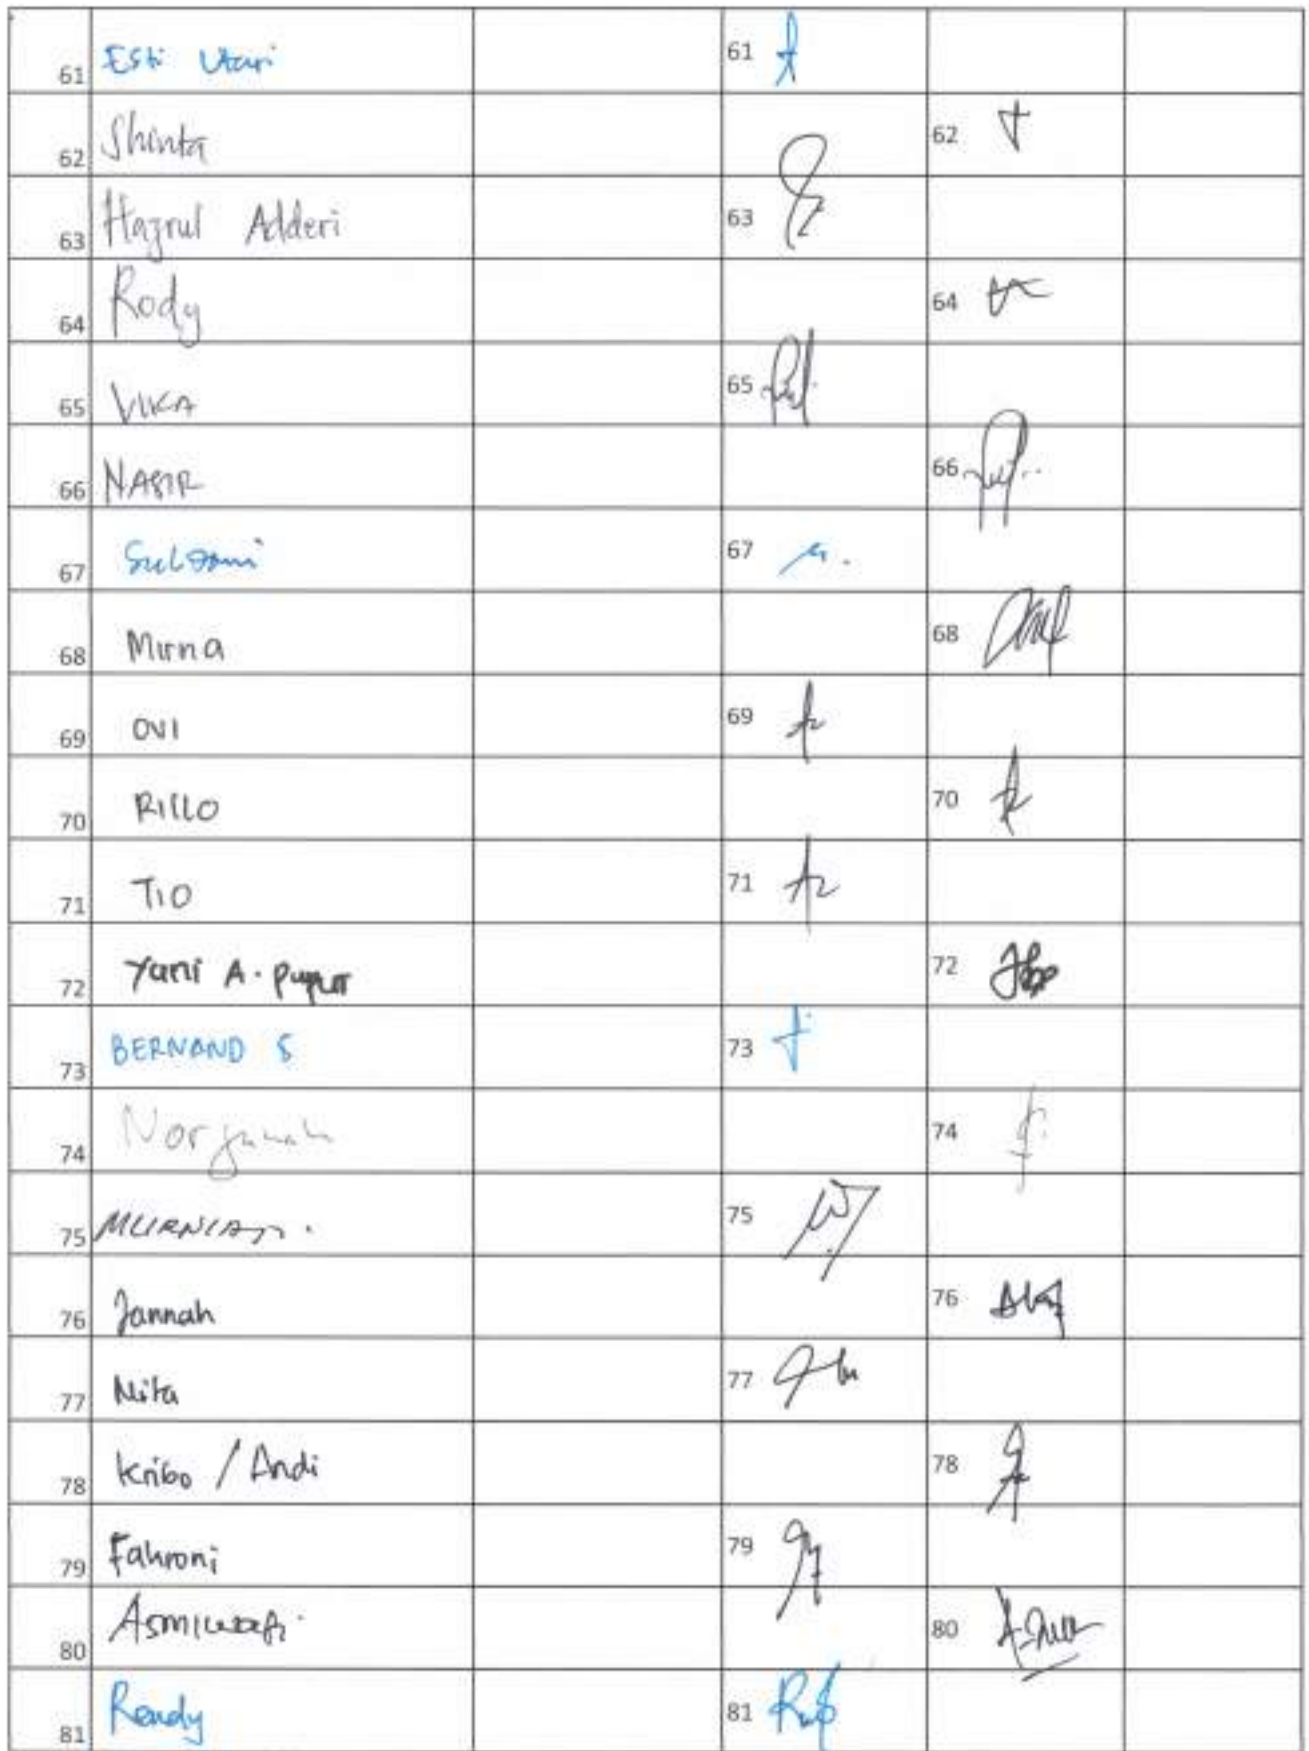 61 Esti Utari 61
62 Shinta 62
63 Hazrul Adderi 63
64 Rody 64
65 VIKA 65
66 NASIR 66
67 67
68 Mirna 68
69 OVI 69
70 RILLO 70
71 TIO 71
72 Yani A. 72
73 BERNAND S 73
74 74
75 MURNIATI. 75
76 Jannah 76
77 Nita 77
78 Kribo / Andi 78
79 Fahroni 79
80 80
81 Rendy 81